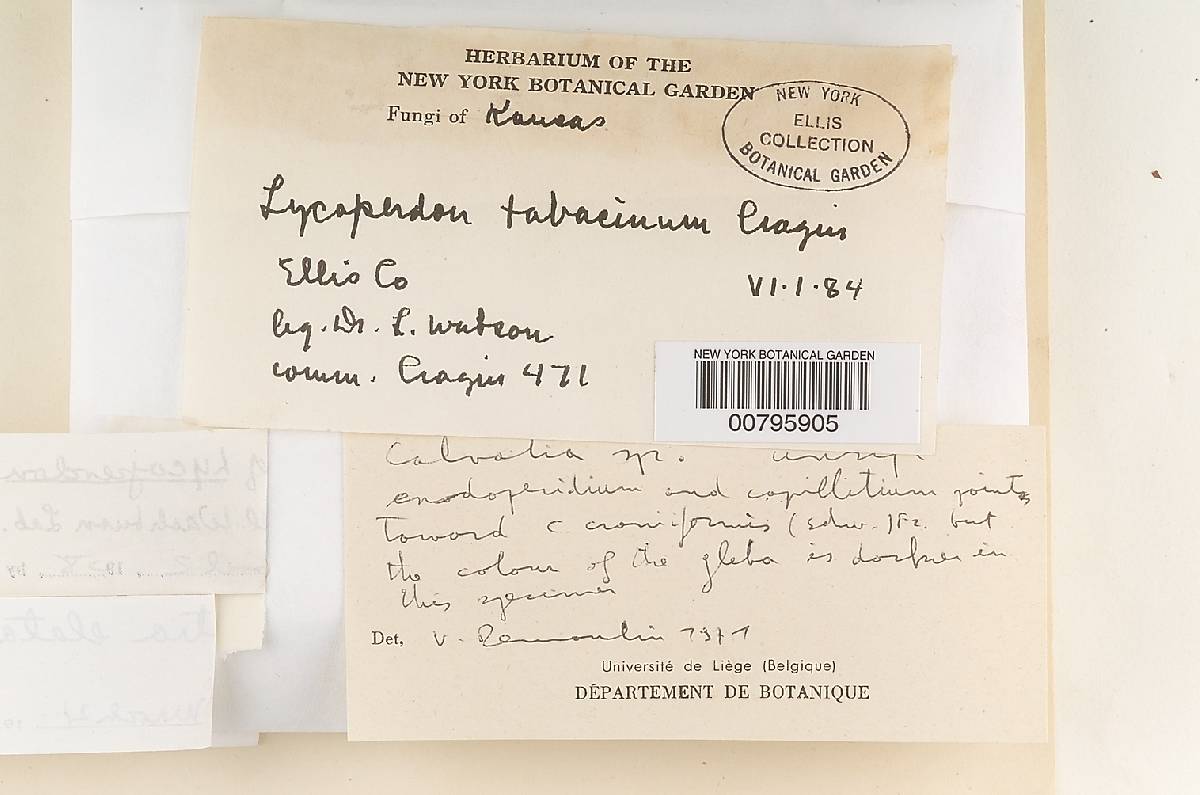 HERBARIUM OF THE
NEW YORK BOTANICAL GARDEN
Fungi of Kansas
NEW YORK
ELLIS
COLLECTION
BOTANICAL GARDEN
Lycoperdon tabacinum Cragin
Ellis Co
VI·1·84
leg. Dr. L. Watson
comm. Cragin 471
NEW YORK BOTANICAL GARDEN
00795905
Calvatia sp.
endoperidium and capillitium points
toward C craniiformis (Schw.) Fr. but
the colour of the gleba is darker in
this specimen
Det, V. Demoulin 1971
Université de Liège (Belgique)
DÉPARTEMENT DE BOTANIQUE
Lycoperdon